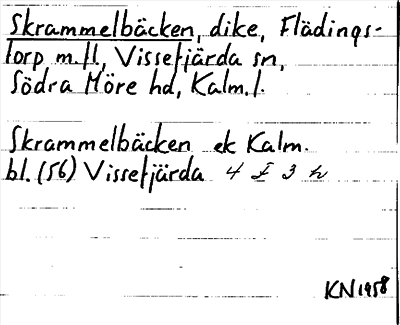 Skrammelbäcken, dike, Flädings-
torp m.fl, Vissefjärda sn,
Södra Möre hd, Kalm.l.
Skrammelbäcken ek Kalm.
bl. (56) Vissefjärda 4 I 3 h
KN 1958